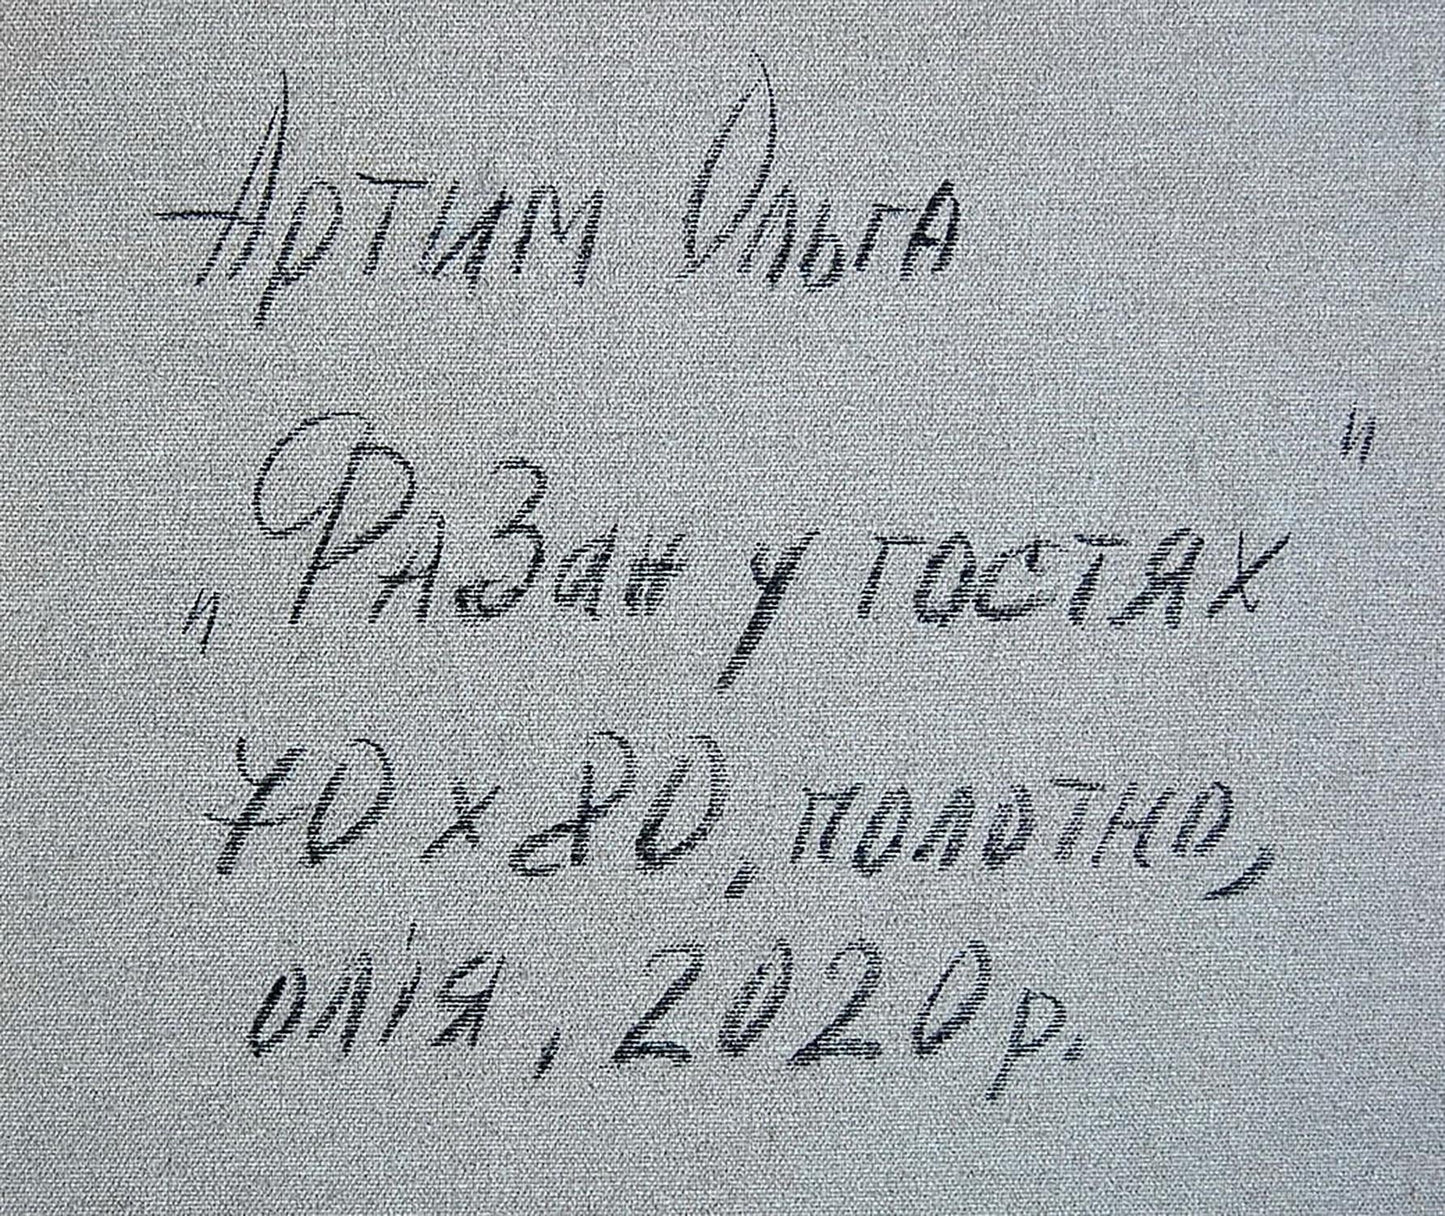 Артим Ольга
„Фазан у гостях"
70 х 80, полотно,
олія, 2020р.